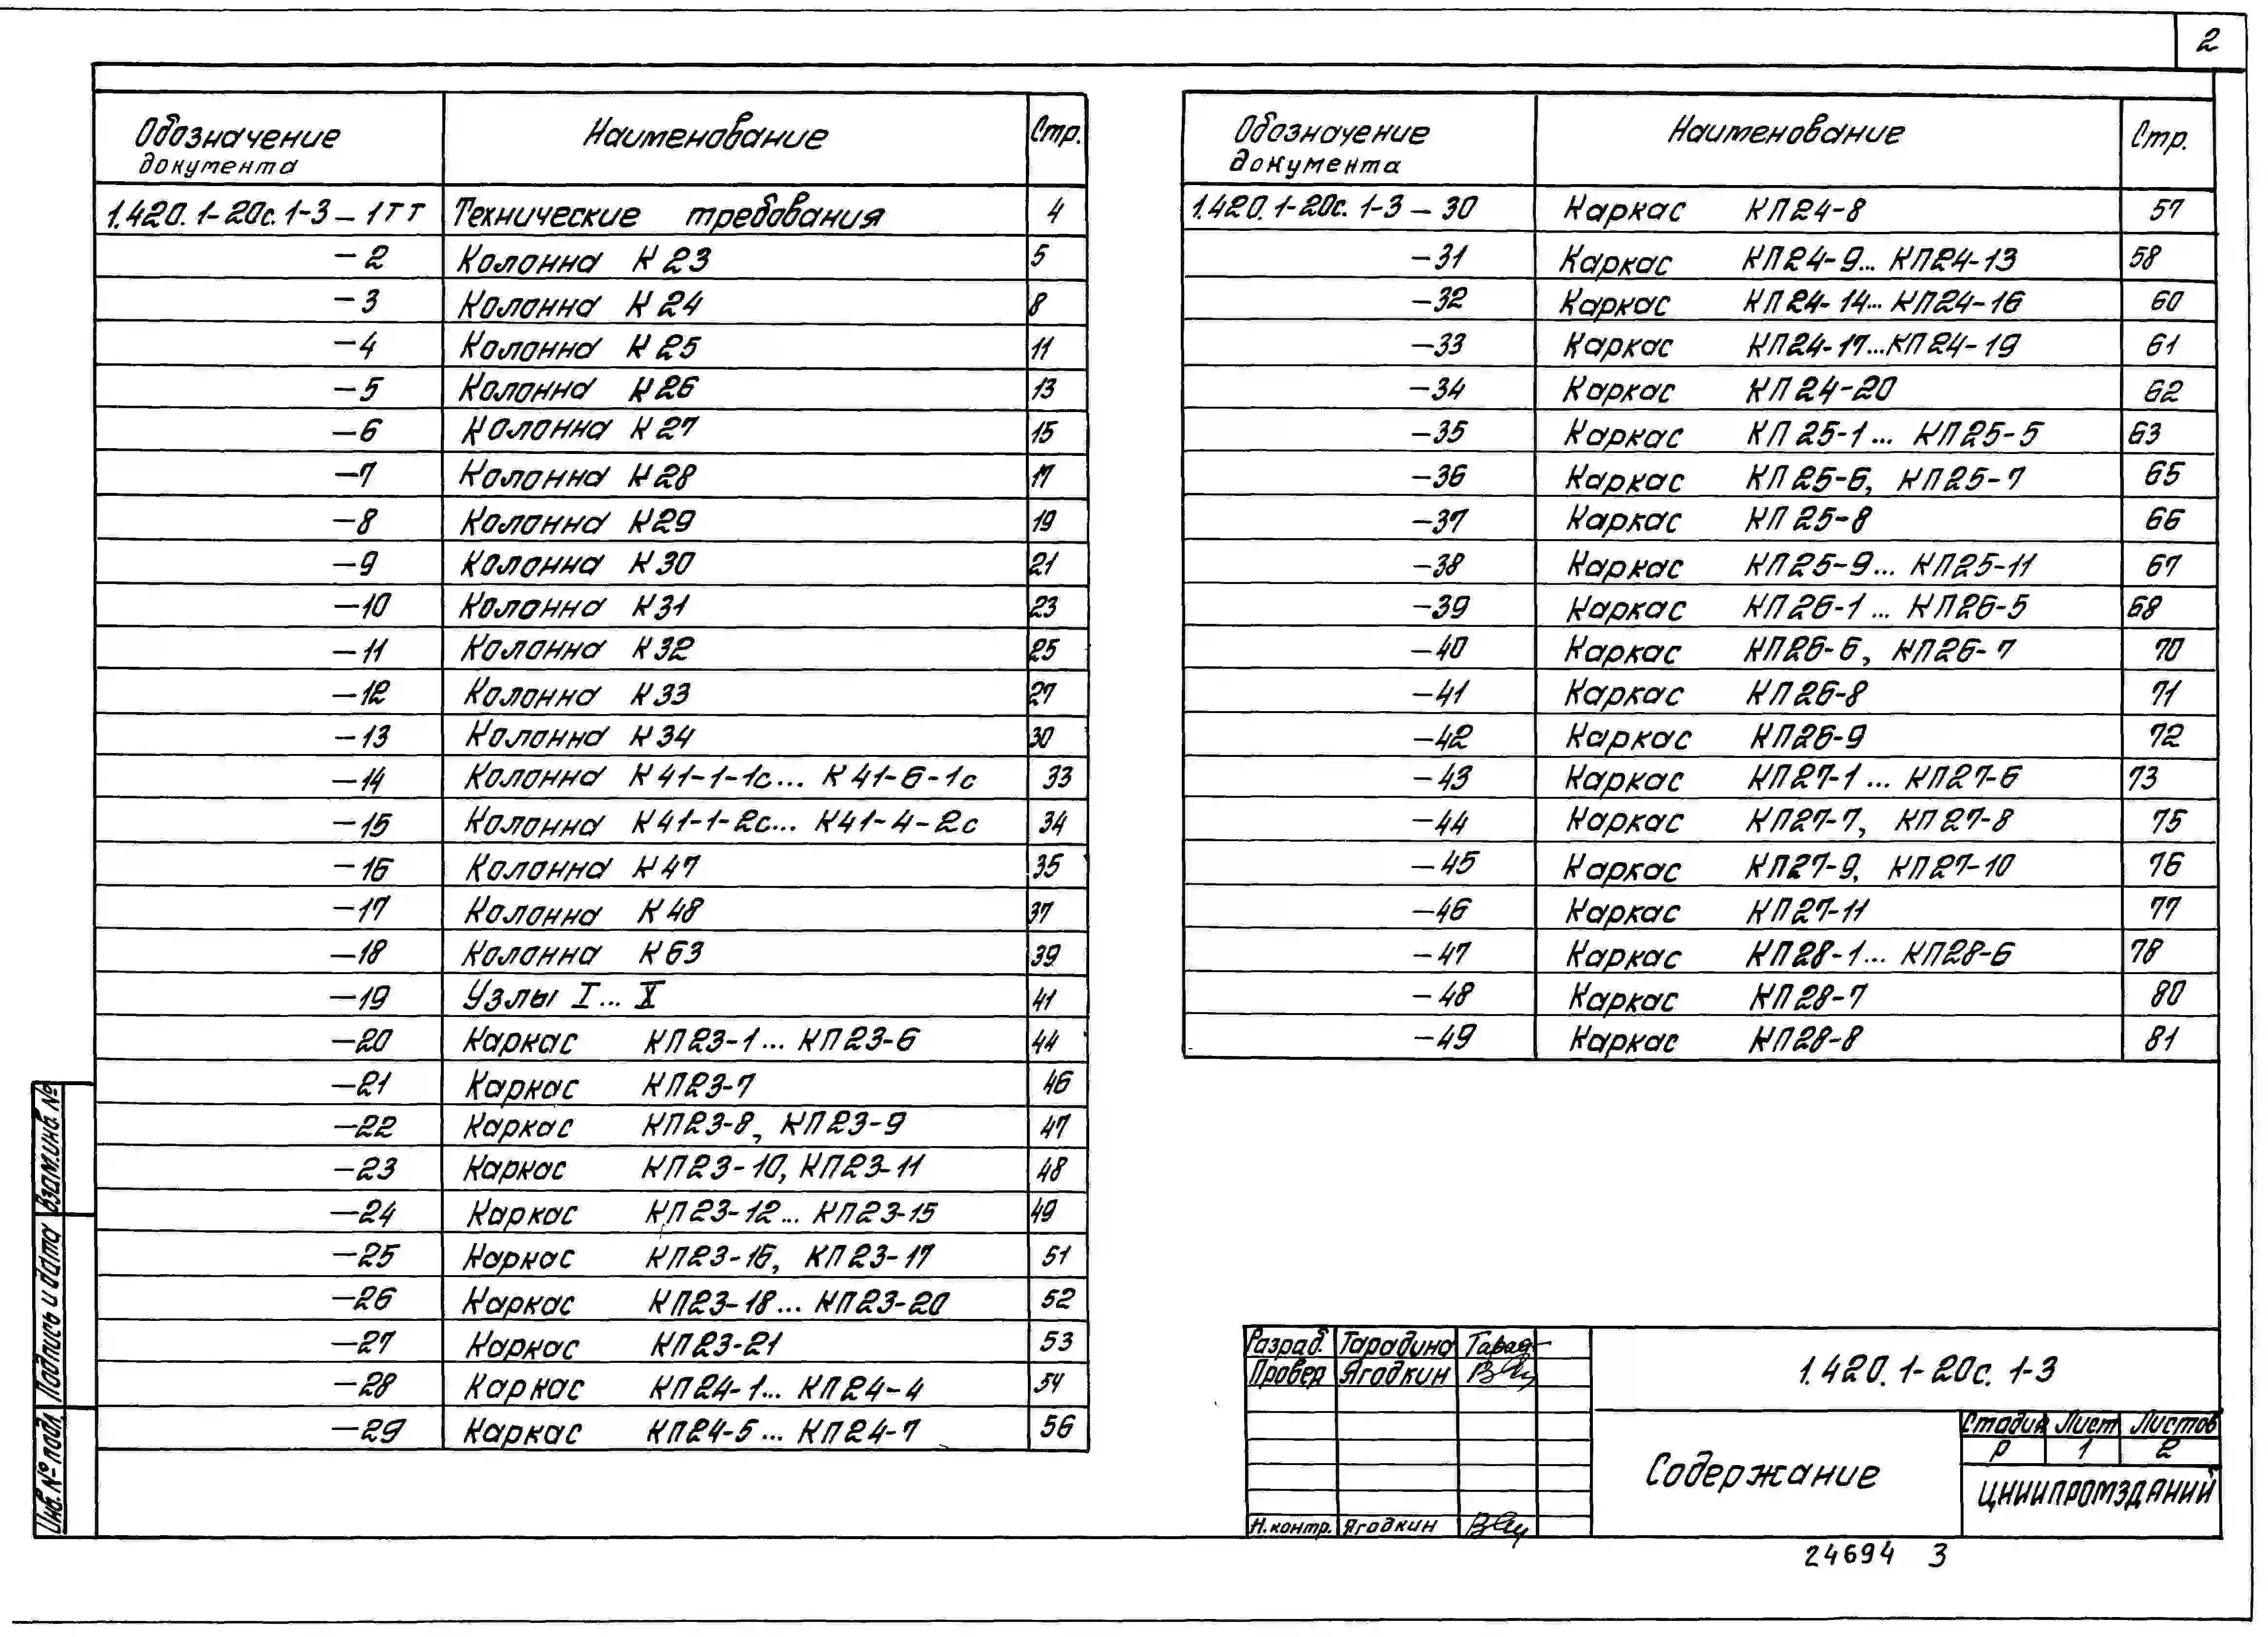 2
Обозначение документа Наименование Стр.
1.420.1-20с.1-3-1ТТ Технические требования 4
-2 Колонна К23 5
-3 Колонна К24 8
-4 Колонна К25 11
-5 Колонна К26 13
-6 Колонна К27 15
-7 Колонна К28 17
-8 Колонна К29 19
-9 Колонна К30 21
-10 Колонна К31 23
-11 Колонна К32 25
-12 Колонна К33 27
-13 Колонна К34 30
-14 Колонна К41-1-1с... К41-6-1с 33
-15 Колонна К41-1-2с... К41-4-2с 34
-16 Колонна К47 35
-17 Колонна К48 37
-18 Колонна К63 39
-19 Узлы I... X 41
-20 Каркас КП23-1... КП23-6 44
-21 Каркас КП23-7 46
-22 Каркас КП23-8, КП23-9 47
-23 Каркас КП23-10, КП23-11 48
-24 Каркас КП23-12... КП23-15 49
-25 Каркас КП23-16, КП23-17 51
-26 Каркас КП23-18... КП23-20 52
-27 Каркас КП23-21 53
-28 Каркас КП24-1... КП24-4 54
-29 Каркас КП24-5... КП24-7 56
Обозначение документа Наименование Стр.
1.420.1-20с.1-3-30 Каркас КП24-8 57
-31 Каркас КП24-9... КП24-13 58
-32 Каркас КП24-14... КП24-16 60
-33 Каркас КП24-17...КП24-19 61
-34 Каркас КП24-20 62
-35 Каркас КП25-1... КП25-5 63
-36 Каркас КП25-6, КП25-7 65
-37 Каркас КП25-8 66
-38 Каркас КП25-9... КП25-11 67
-39 Каркас КП26-1... КП26-5 68
-40 Каркас КП26-6, КП26-7 70
-41 Каркас КП26-8 71
-42 Каркас КП26-9 72
-43 Каркас КП27-1... КП27-6 73
-44 Каркас КП27-7, КП27-8 75
-45 Каркас КП27-9, КП27-10 76
-46 Каркас КП27-11 77
-47 Каркас КП28-1... КП28-6 78
-48 Каркас КП28-7 80
-49 Каркас КП28-8 81
Взам.инв.№
Подпись и дата
Инв.№ подл.
Разраб. Тарадина
Провер Ягодкин
Н.контр. Ягодкин
1.420.1-20с.1-3
Содержание
Стадия Лист Листов
Р 1 2
ЦНИИПРОМЗДАНИЙ
24694 3